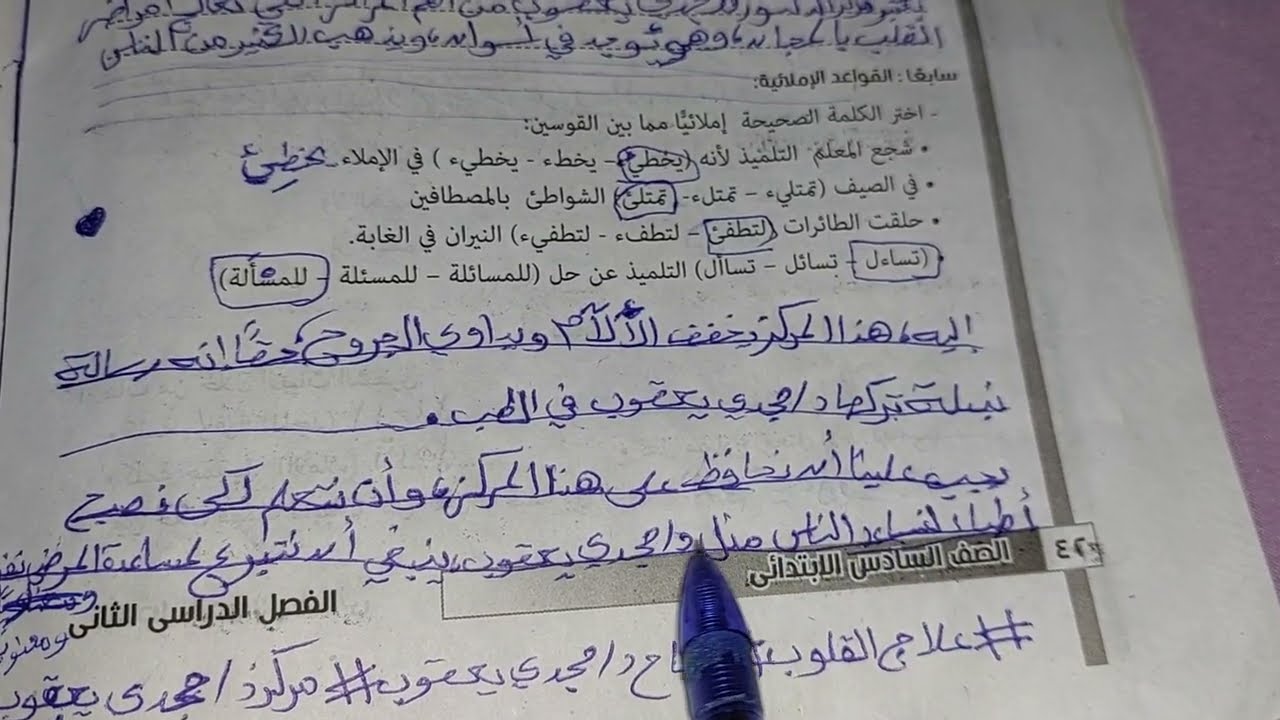 يعتبر مركز الدكتور مجدي يعقوب من أهم المراكز التي تعالج أمراض
القلب بالمجان، وهي توجد في أسوان، ويذهب الكثير من الناس
سابعًا: القواعد الإملائية:
- اختر الكلمة الصحيحة إملائيًّا مما بين القوسين:
• شجع المعلم التلميذ لأنه (يخطئ – يخطء - يخطيء ) في الإملاء يخطِئ
• في الصيف (تمتليء – تمتلء- تمتلئ) الشواطئ بالمصطافين
• حلقت الطائرات (لتطفئ – لتطفء - لتطفيء) النيران في الغابة.
• (تساءل – تسائل – تساأل) التلميذ عن حل (للمسائلة – للمسئلة – للمسألة)
إليه، هذا المركز يخفف الألآم ويداوي الجروح، حقًا إنه رسالة
نبيلة تركها د/مجدي يعقوب في الطب.
يجب علينا أن نحافظ على هذا المركز، وأن نتعلم لكى نصبح
أطباء لنساعد الناس مثل د/مجدي يعقوب، ينبغي أن نتبرع لمساعدة المرضى
٤٢ الصف السادس الابتدائى
الفصل الدراسى الثانى
# علاج القلوب# د/مجدي يعقوب# مركز د/مجدى يعقوب